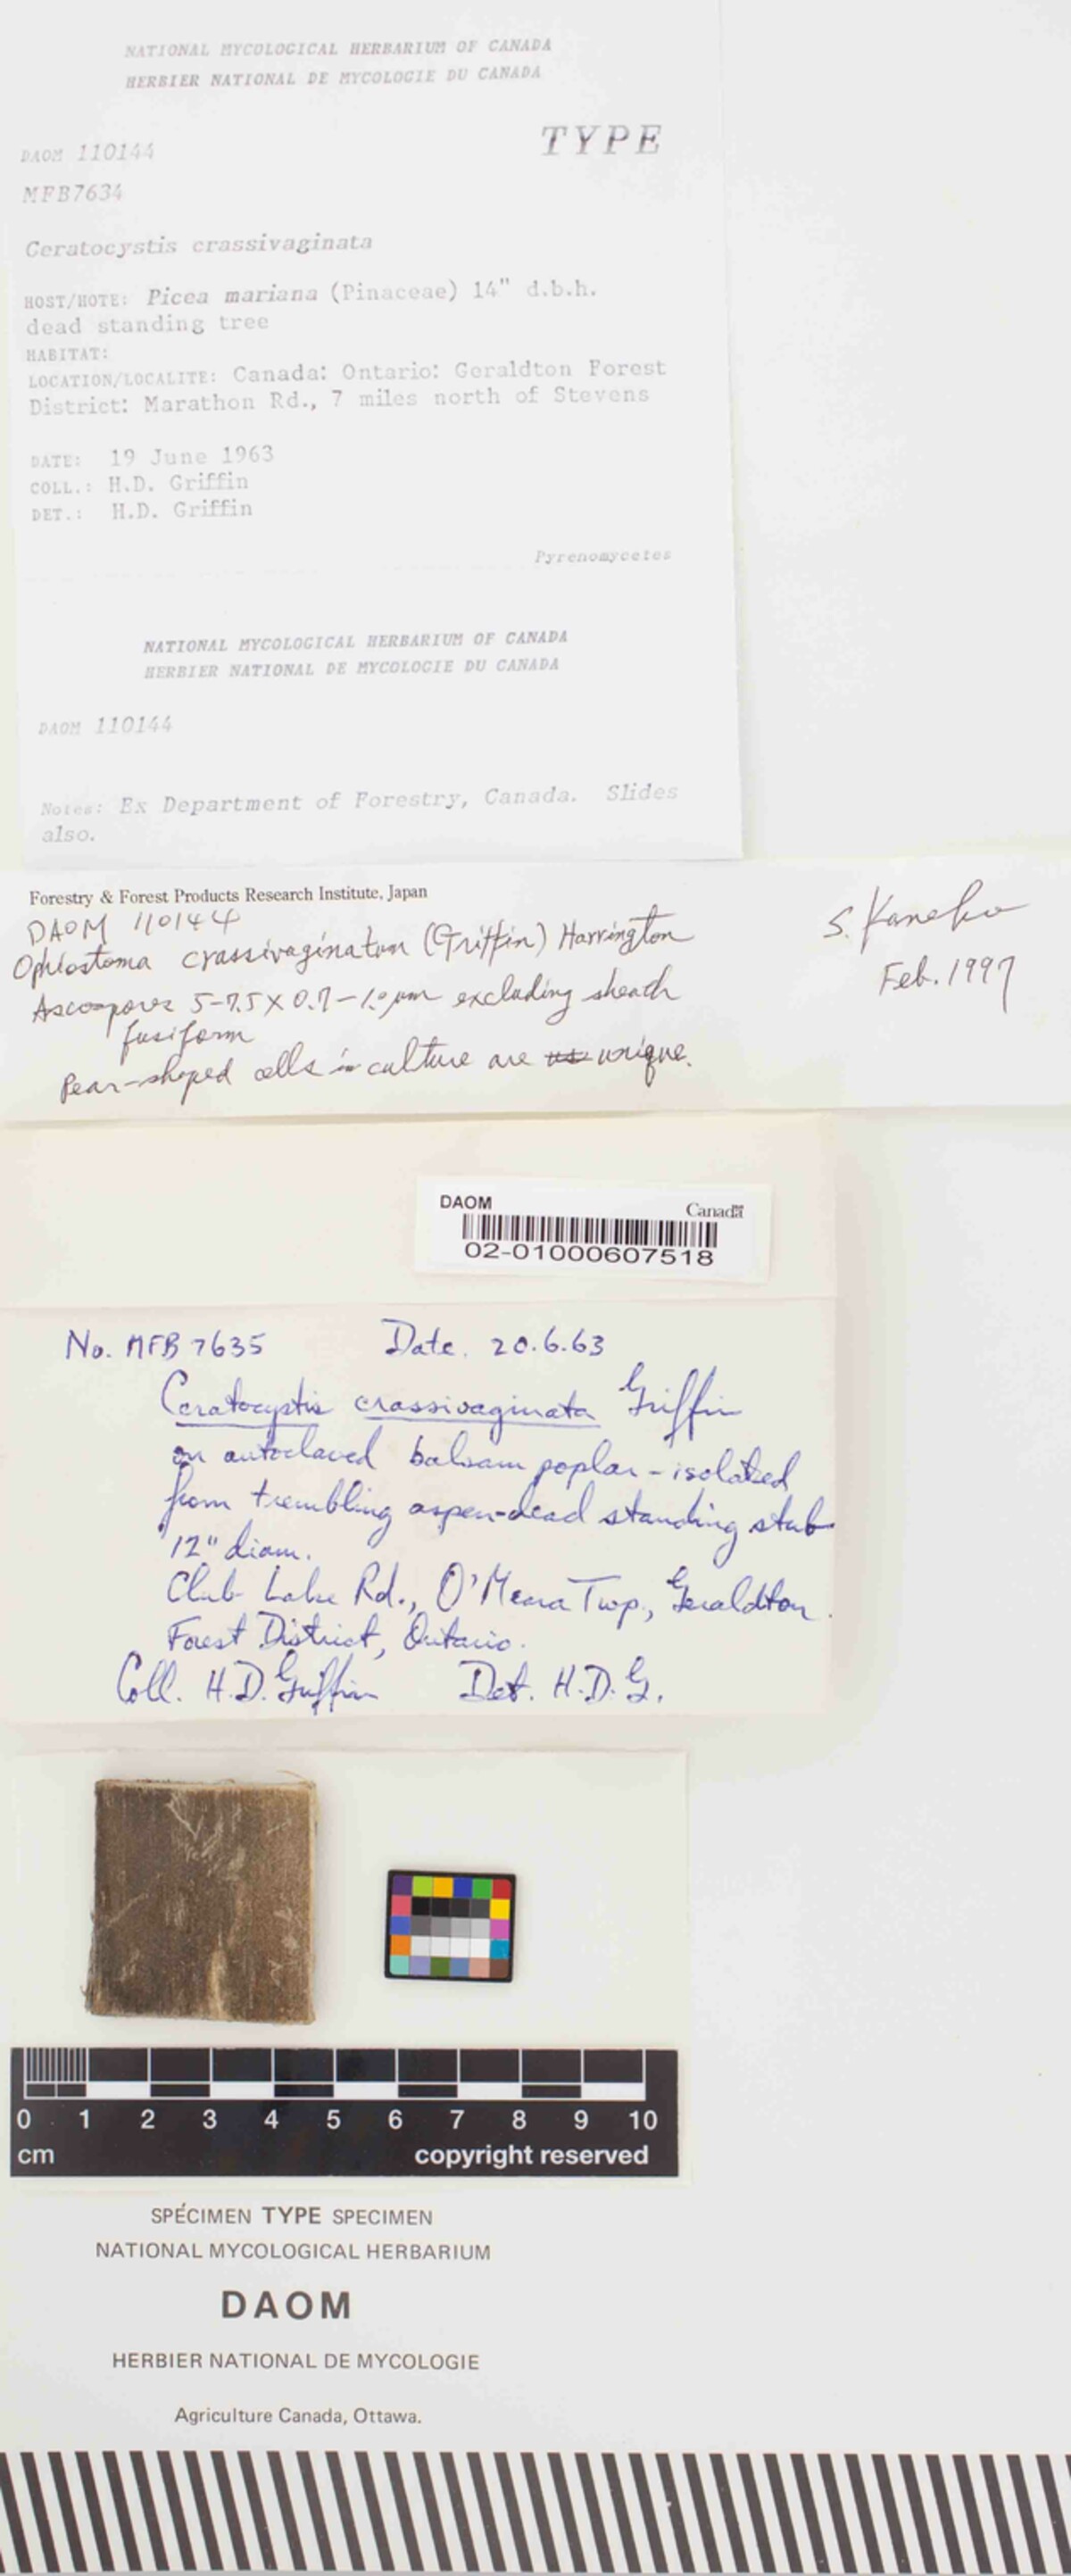 NATIONAL MYCOLOGICAL HERBARIUM OF CANADA
HERBIER NATIONAL DE MYCOLOGIE DU CANADA
TYPE
DAOM 110144
MFB7634
Ceratocystis crassivaginata
HOST/HOTE: Picea mariana (Pinaceae) 14" d.b.h.
dead standing tree
HABITAT:
LOCATION/LOCALITE: Canada: Ontario: Geraldton Forest
District: Marathon Rd., 7 miles north of Stevens
DATE: 19 June 1963
COLL.: H.D. Griffin
DET.: H.D. Griffin
Pyrenomycetes
NATIONAL MYCOLOGICAL HERBARIUM OF CANADA
HERBIER NATIONAL DE MYCOLOGIE DU CANADA
DAOM 110144
Notes: Ex Department of Forestry, Canada. Slides
also.
Forestry & Forest Products Research Institute, Japan
DAOM 110144
S. Kaneko
Ophiostoma crassivaginatum (Griffin) Harrington
Feb. 1997
Ascospores 5-7.5 x 0.7-1.0 µm excluding sheath
fusiform
Pear-shaped cells in culture are unique.
DAOM Canada
02-01000607518
No. MFB 7635 Date. 20.6.63
Ceratocystis crassivaginata Griffin
on autoclaved balsam poplar - isolated
from trembling aspen-dead standing stub
12" diam.
Club Lake Rd., O'Meara Twp., Geraldton
Forest District, Ontario.
Coll. H.D. Griffin Det. H.D.G.
0 1 2 3 4 5 6 7 8 9 10
cm copyright reserved
SPÉCIMEN TYPE SPECIMEN
NATIONAL MYCOLOGICAL HERBARIUM
DAOM
HERBIER NATIONAL DE MYCOLOGIE
Agriculture Canada, Ottawa.